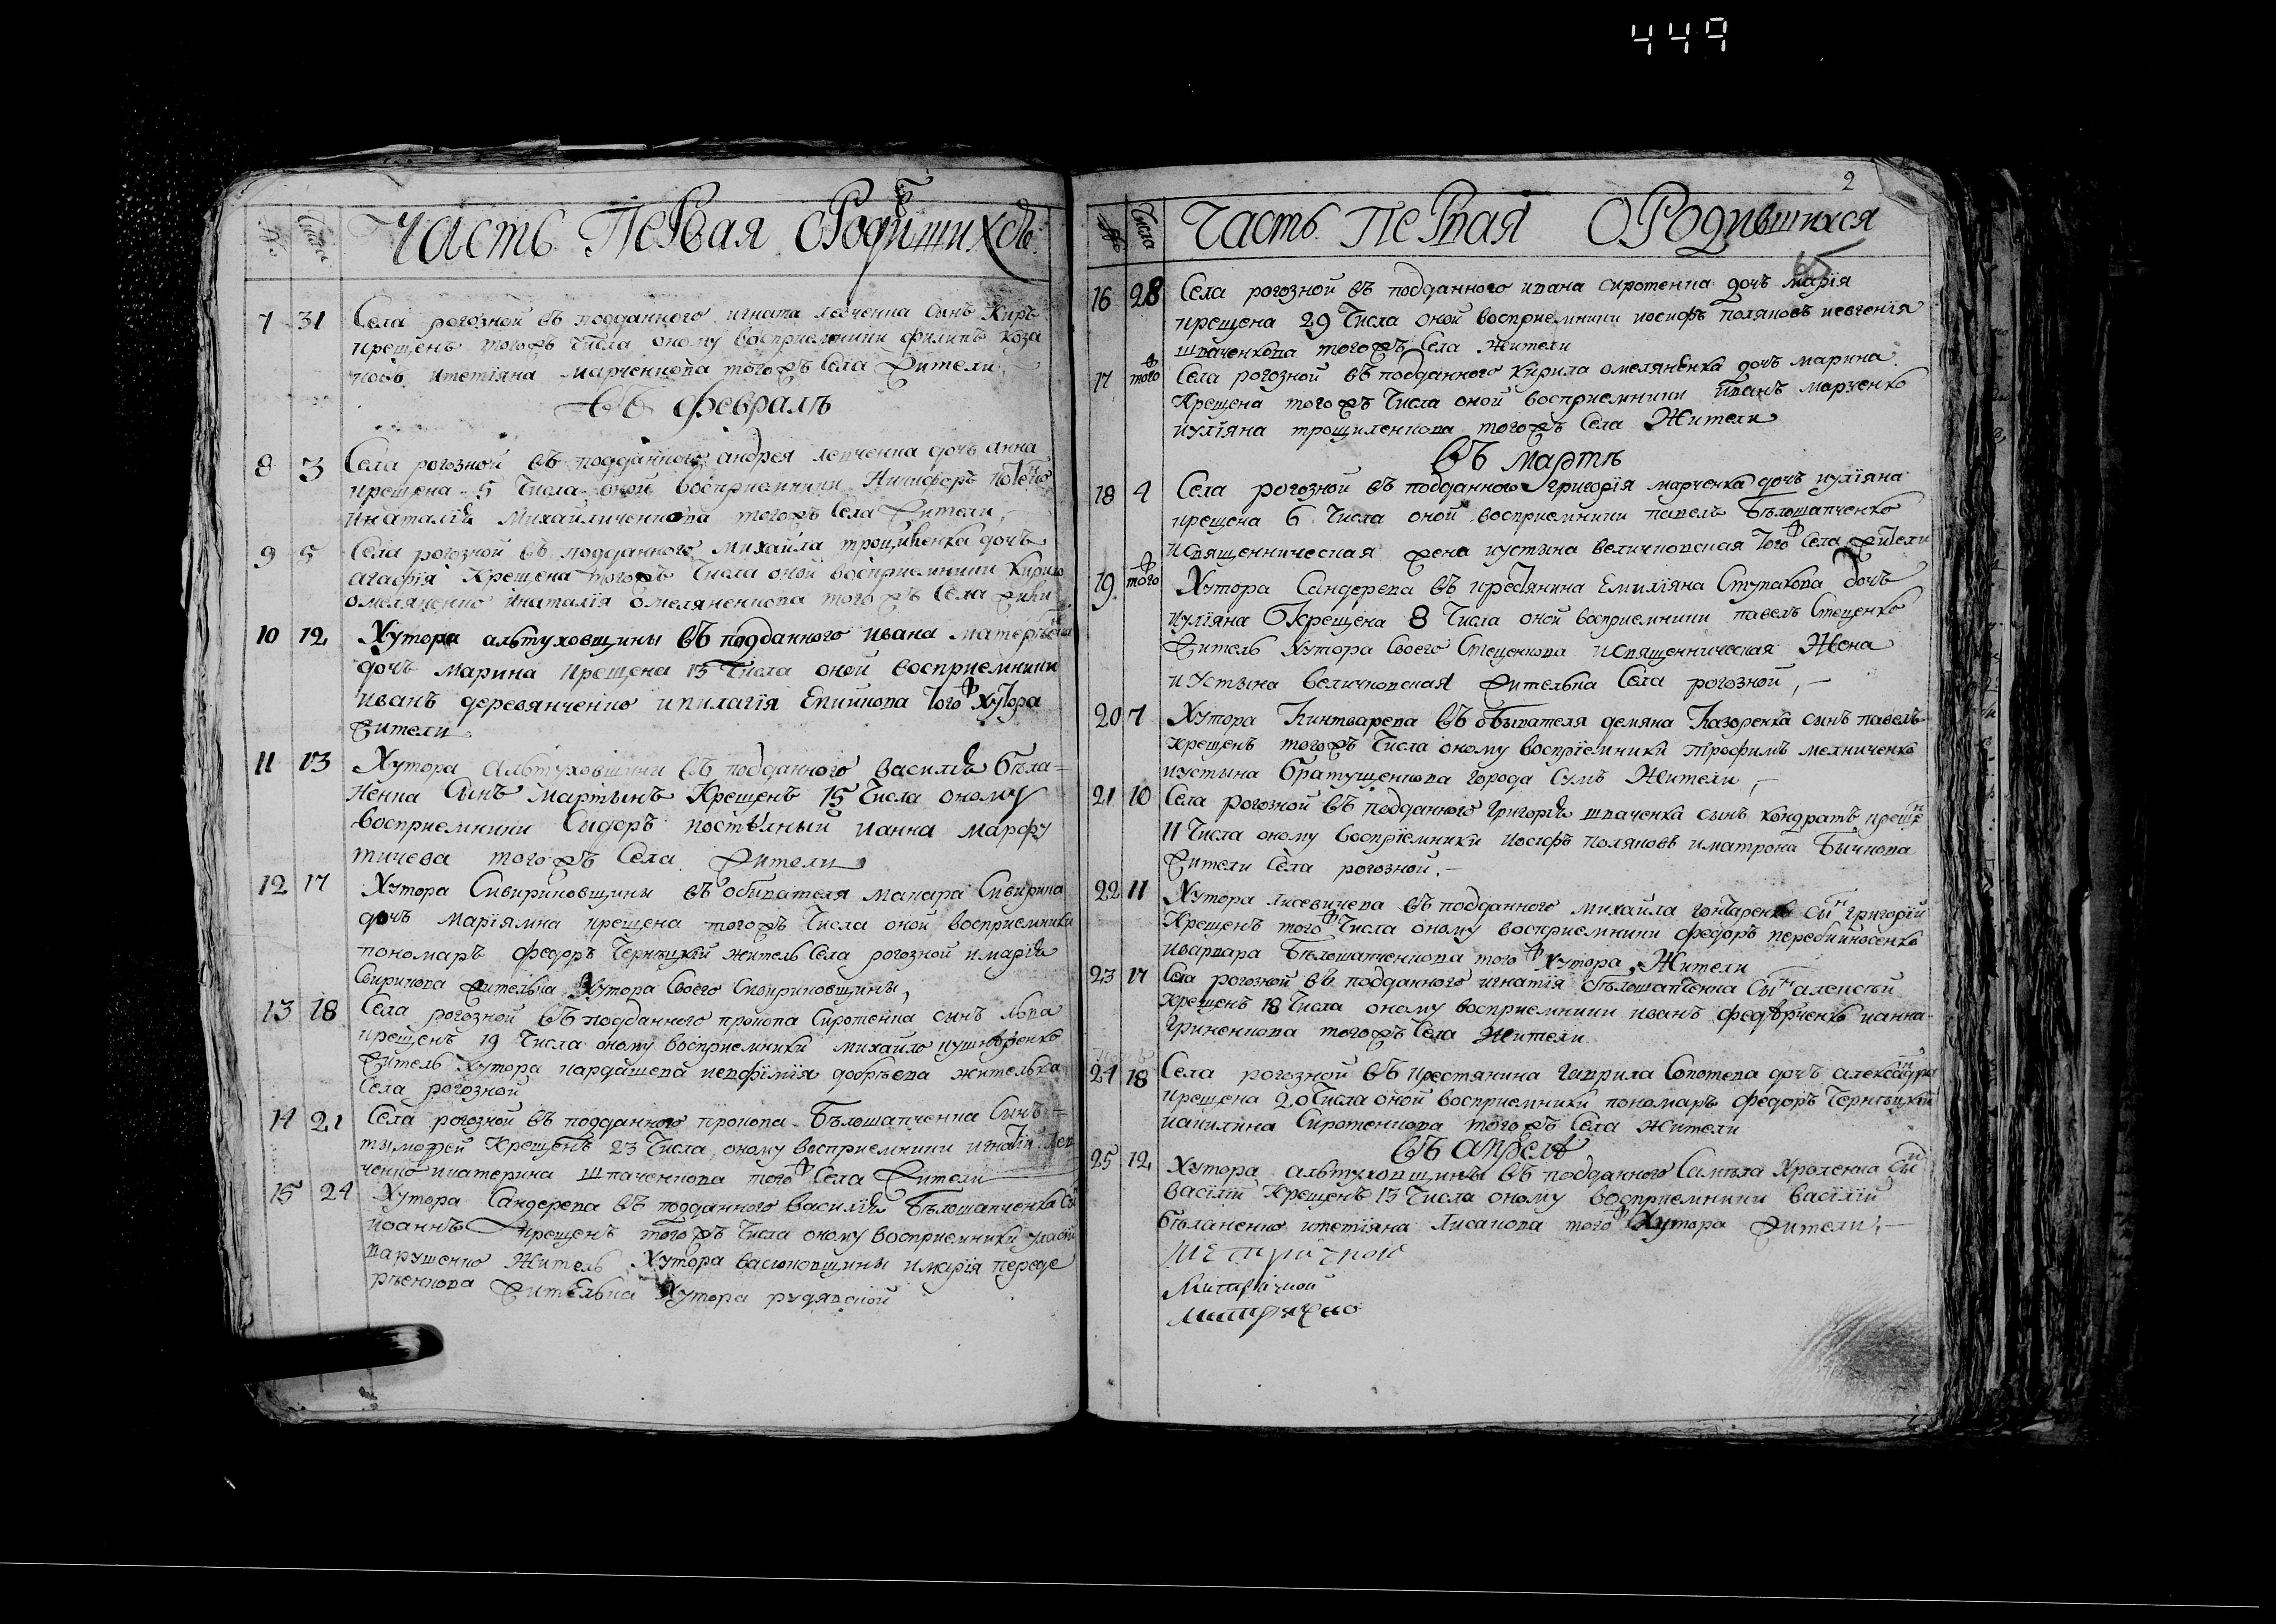 449
№ Числа Часть Первая ОРодившихся
7 31 Села рогозной въ подданного игната левченка Сынъ Киръ
крещенъ тогожъ Числа оному восприемники филипъ коза
ковъ итетіяна марченкова тогожъ Села Жители
въ февралѣ
8 3 Села рогозной въ подданного андрея левченка дочь анна
крещена 5 Числа оной восприемники Никифоръ
инаталія Михайличенкова тогожъ Села Жители,
9 5 Села рогозной въ подданного михайла трощиленка дочь
агафія Крещена тогожъ Числа оной восприемники Кирило
омеляненко инаталія омеляненкова тогожъ Села
10 12 Хутора альтуховщины въ подданного ивана
дочь марина крещена 15 Числа оной восприемники
иванъ деревянченко ипилагія Епийкова того ж хутора
жители
11 13 Хутора альтуховщини въ подданного василія бѣла=
ненка Сынъ мартынъ Крещенъ 15 Числа оному
восприемники Сидоръ ианна марфу
тичева тогожъ Села жители
12 17 Хутора Сивириновщины въ обивателя макара Сивирина
дочь маріямна крещена тогожъ Числа оной восприемники
пономаръ федоръ Чернѣцкій житель Села рогозной имарія
жителька Хутора Своего Сивириновщины,
13 18 Села рогозной въ подданного прокопа Сиротенка сынъ лька
крещенъ 19 Числа оному восприемники михайло кушнѣренко
житель хутора кардашева иевфимія добрѣева жителька
Села рогозной
14 21 Села рогозной въ подданного прокопа Бѣлошапченка Сынъ=
тимофей Крещенъ 23 Числа оному восприемники игнатій лев
ченко икатерина шпаченкова того ж Села Жители
15 24 Хутора Сандерева въ подданного василія Бѣлошапченка Сы
иоаннъ крещенъ тогожъ Числа оному восприемники
Житель Хутора васюковщины имарія переде
рѣенкова жителька Хутора рудявской
2
№ Числа Часть Первая ОРодившихся
16 28 Села рогозной въ подданного ивана сиротенка дочь марія
крещена 29 Числа оной восприемники иосифъ поляковъ иевгенія
шпаченкова тогожъ Села Жители
17 того ж Села рогозной въ подданного кирила омеляненка дочь марина
Крещена тогожъ Числа оной восприемники иванъ марченко
иуліяна трощиленкова тогожъ Села Жители
въ мартѣ
18 4 Села рогозной въ подданного григорія марченка дочь иуліяна
крещена 6 Числа оной восприемники павелъ Бѣлошапченко
исвященническая жена иустина величковская того ж Села жители
19 того ж Хутора Сандерева въ крестянина Емиліяна Ступакова дочь
иуліяна Окрещена 8 Числа оной восприемники павелъ Стеценко
Житель Хутора Своего Стеценкова исвященническая Жена
иустына величковская жителька Села рогозной,—
20 7 Хутора Кинтварева въ обывателя демяна Казоренка сынъ павелъ
крещенъ тогожъ Числа оному воспріемники трофимъ мелниченко
иустына братущенкова города Сумъ Жители,—
21 10 Села рогозной въ подданного григорія шпаченка сынъ кондратъ крещен
11 Числа оному воспріемники иосифъ поляковъ иматрона Бычкова
жители Села рогозной.—
22 11 Хутора лисевичева въ подданного михайла гончаренка сын григорій
Крещенъ того ж Числа оному восприемники федоръ перебийносенко
иварвара Бѣлошапченкова того ж хутора, Жители
23 17 Села рогозной въ подданного игнатія бѣлошапченка Сын алексѣй
крещенъ 18 Числа оному восприемники иванъ федорченко ианна
гриненкова тогожъ Села Жители
24 18 Села рогозной въ крестянина гаврила Сопотева дочь александра
крещена 20 Числа оной восприемники пономаръ федоръ Чернѣцкій
иакилина Сиротенкова тогожъ Села жители
въ апрелѣ
25 12 Хутора альтуховщины въ подданного Самѣла Хроленка сын
василій Крещенъ 13 Числа оному восприемники василій
бѣланенко итетіяна Лисакова того ж Хутора жители,—